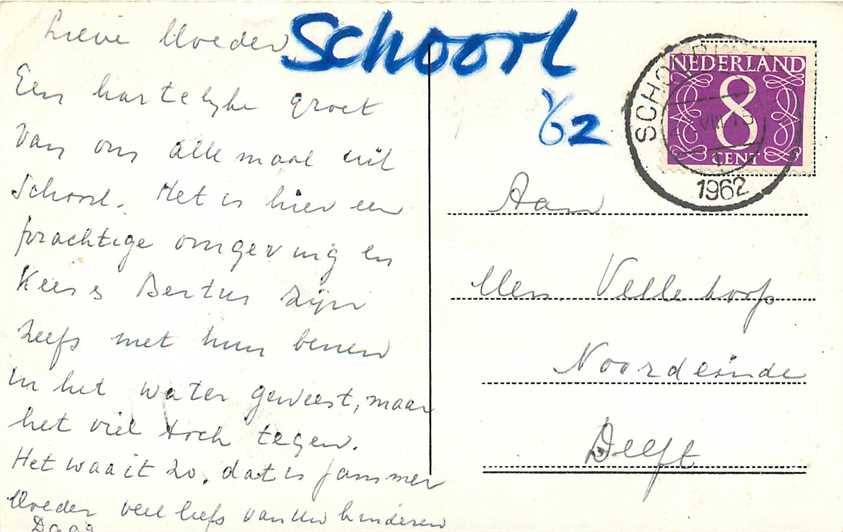 Lieve Moeder
Een hartelijke groet
van ons allemaal uit
Schoorl. Het is hier een
prachtige omgeving en
Kees & Bertus zijn
zelfs met hun benen
in het water geweest, maar
het viel toch tegen.
Het waait zo, dat is jammer
Moeder veel liefs van uw kinderen
Daag
Schoorl
62
SCHOORL
1962
NEDERLAND
8
CENT
Aan
Mev.
Noordeinde
Delft